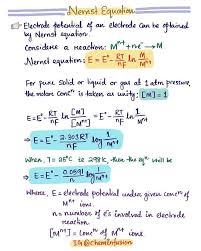 Nernst Equation
Electrode potential of an electrode can be obtained
by Nernst equation.
Considere a reaction: Mⁿ⁺ + ne⁻ → M
Nernst equation: E = E° - RT/nF ln M/Mⁿ⁺
For pure solid or liquid or gas at 1 atm pressure,
the molar concⁿ is taken as unity: [M] = 1
E = E° - RT/nF ln [M]/[Mⁿ⁺] = E° - RT/nF ln 1/Mⁿ⁺
⇒ E = E° - 2.303RT/nF log 1/Mⁿ⁺
When, T = 25°C ie 298K, then the eqⁿ will be
⇒ E = E° - 0.0591/n log 1/Mⁿ⁺
Where, E = electrode potential under given concⁿ of
Mⁿ⁺ ions.
n = numbers of e's involved in electrode
reaction.
[Mⁿ⁺] = concⁿ of Mⁿ⁺ ions.